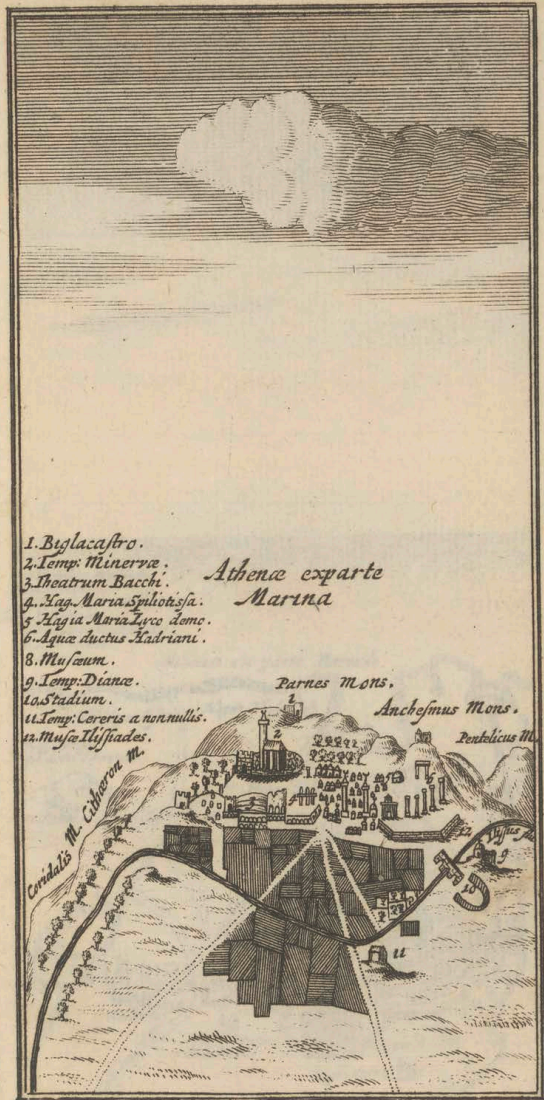 1. Biglacastro.
2. Temp: Minervæ.
3. Theatrum Bacchi.
4. Hag. Maria Spiliotissa.
5 Hagia Maria Lyco demo.
6. Aquæ ductus Hadriani.
8. Musæum.
9. Temp: Dianæ.
10. Stadium.
11. Temp: Cereris a nonnullis.
12. Musæ Ilyssiades.
Athenæ exparte
Marina
Parnes Mons.
Anchesmus Mons.
Pentelicus M.
Coridalis M. Cithæron M.
1
2
12
Ilysus
9
10
11